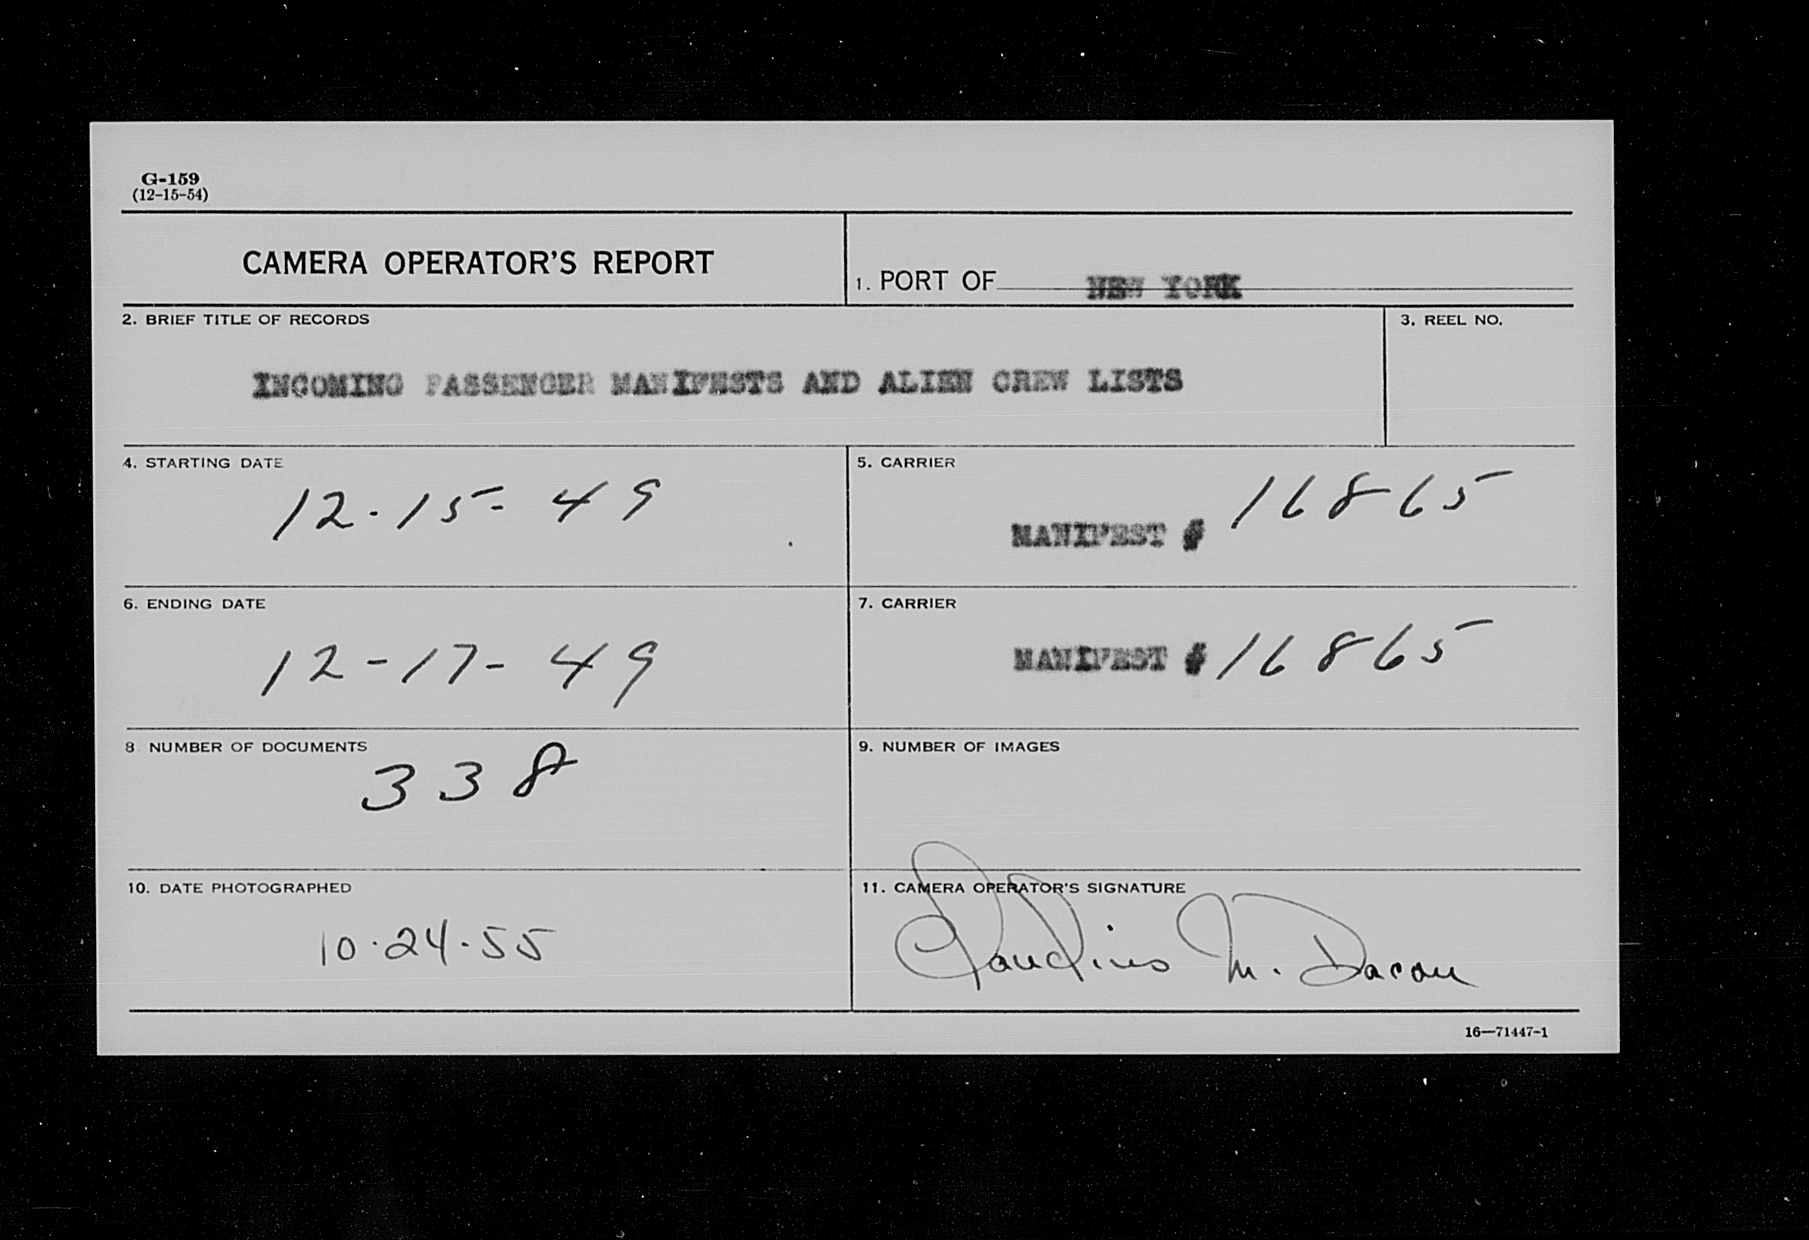 G-159
(12-15-54)
CAMERA OPERATOR'S REPORT
1. PORT OF NEW YORK
2. BRIEF TITLE OF RECORDS
3. REEL NO.
INCOMING PASSENGER MANIFESTS AND ALIEN CREW LISTS
4. STARTING DATE
12-15-49
5. CARRIER
MANIFEST # 16865
6. ENDING DATE
12-17-49
7. CARRIER
MANIFEST # 16865
8 NUMBER OF DOCUMENTS
338
9. NUMBER OF IMAGES
10. DATE PHOTOGRAPHED
10.24.55
11. CAMERA OPERATOR'S SIGNATURE
Claudius M.
16—71447-1